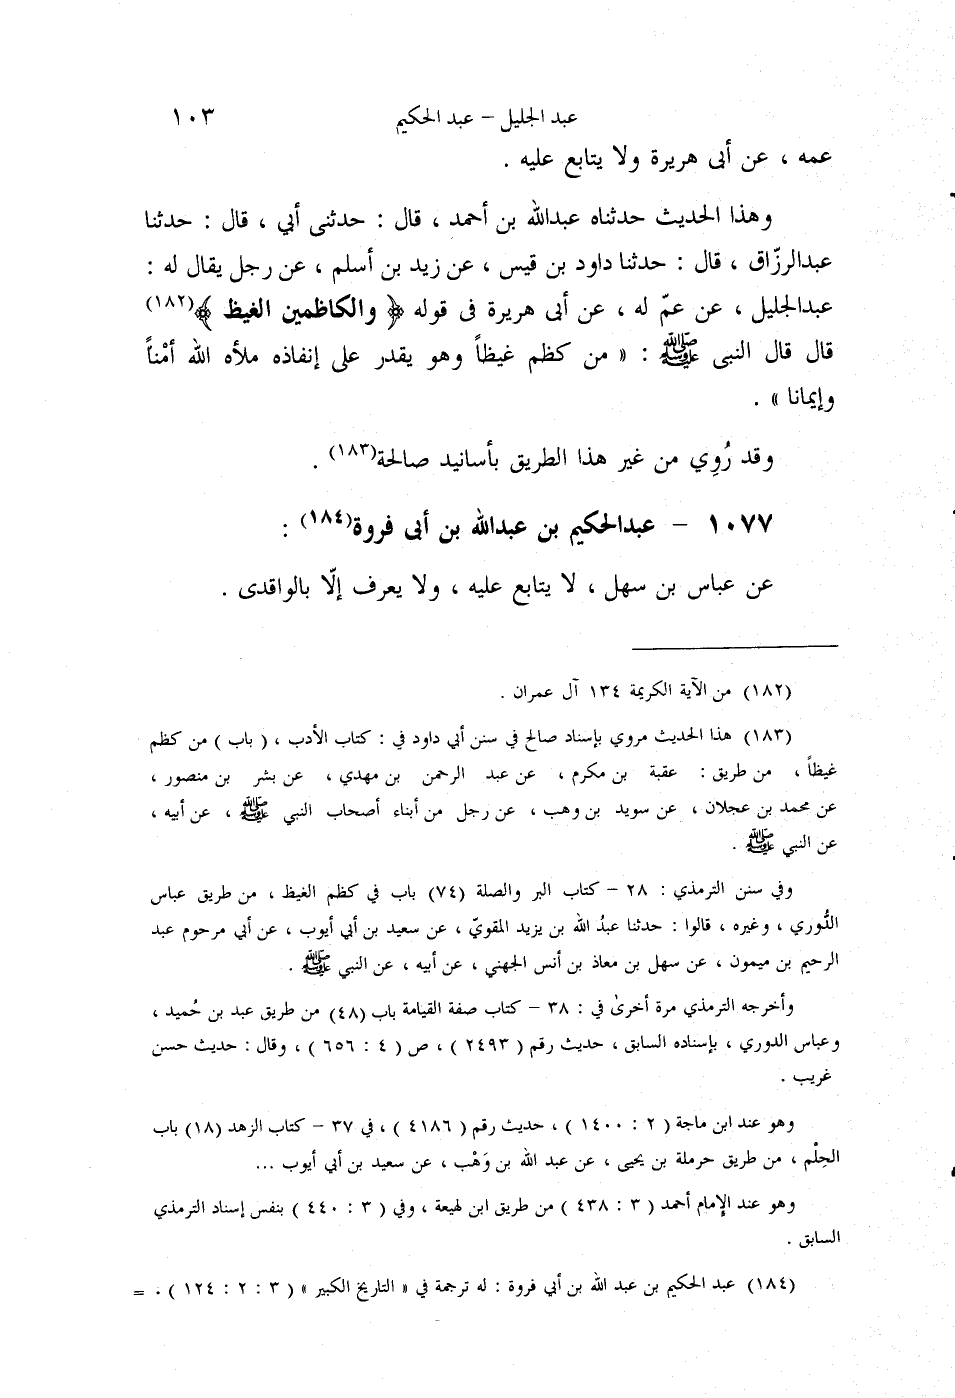 عبد الجليل – عبد الحكيم ١٠٣
عمه ، عن أبى هريرة ولا يتابع عليه .
وهذا الحديث حدثناه عبدالله بن أحمد ، قال : حدثنى أبي ، قال : حدثنا
عبدالرزّاق ، قال : حدثنا داود بن قيس ، عن زيد بن أسلم ، عن رجل يقال له :
عبدالجليل ، عن عمّ له ، عن أبى هريرة فى قوله ﴿ والكاظمين الغيظ ﴾(١٨٢)
قال قال النبى ﷺ : « من كظم غيظاً وهو يقدر على إنفاذه ملأه الله أمْناً
وإيمانا » .
وقد رُوِي من غير هذا الطريق بأسانيد صالحة(١٨٣) .
١٠٧٧ – عبدالحكيم بن عبدالله بن أبى فروة(١٨٤) :
عن عباس بن سهل ، لا يتابع عليه ، ولا يعرف إلّا بالواقدى .
(١٨٢) من الآية الكريمة ١٣٤ آل عمران .
(١٨٣) هذا الحديث مروي بإسناد صالح في سنن أبي داود في : كتاب الأدب ، ( باب ) من كظم
غيظاً ، من طريق : عقبة بن مكرم ، عن عبد الرحمن بن مهدي ، عن بشر بن منصور ،
عن محمد بن عجلان ، عن سويد بن وهب ، عن رجل من أبناء أصحاب النبي ﷺ ، عن أبيه ،
عن النبي ﷺ .
وفي سنن الترمذي : ٢٨ – كتاب البر والصلة (٧٤) باب في كظم الغيظ ، من طريق عباس
الدُّوري ، وغيره ، قالوا : حدثنا عبدُ الله بن يزيد المقويّ ، عن سعيد بن أبي أيوب ، عن أبي مرحوم عبد
الرحيم بن ميمون ، عن سهل بن معاذ بن أنس الجهني ، عن أبيه ، عن النبي ﷺ .
وأخرجه الترمذي مرة أخرىٰ في : ٣٨ – كتاب صفة القيامة باب (٤٨) من طريق عبد بن حُميد ،
وعباس الدوري ، بإسناده السابق ، حديث رقم ( ٢٤٩٣ ) ، ص ( ٤ : ٦٥٦ ) ، وقال : حديث حسن
غريب .
وهو عند ابن ماجة ( ٢ : ١٤٠٠ ) ، حديث رقم ( ٤١٨٦ ) ، في ٣٧ – كتاب الزهد (١٨) باب
الحِلْم ، من طريق حرملة بن يحيى ، عن عبد الله بن وَهْب ، عن سعيد بن أبي أيوب ...
وهو عند الإمام أحمد ( ٣ : ٤٣٨ ) من طريق ابن لهيعة ، وفي ( ٣ : ٤٤٠ ) بنفس إسناد الترمذي
السابق .
(١٨٤) عبد الحكيم بن عبد الله بن أبي فروة : له ترجمة في « التاريخ الكبير » ( ٣ : ٢ : ١٢٤ ) . =